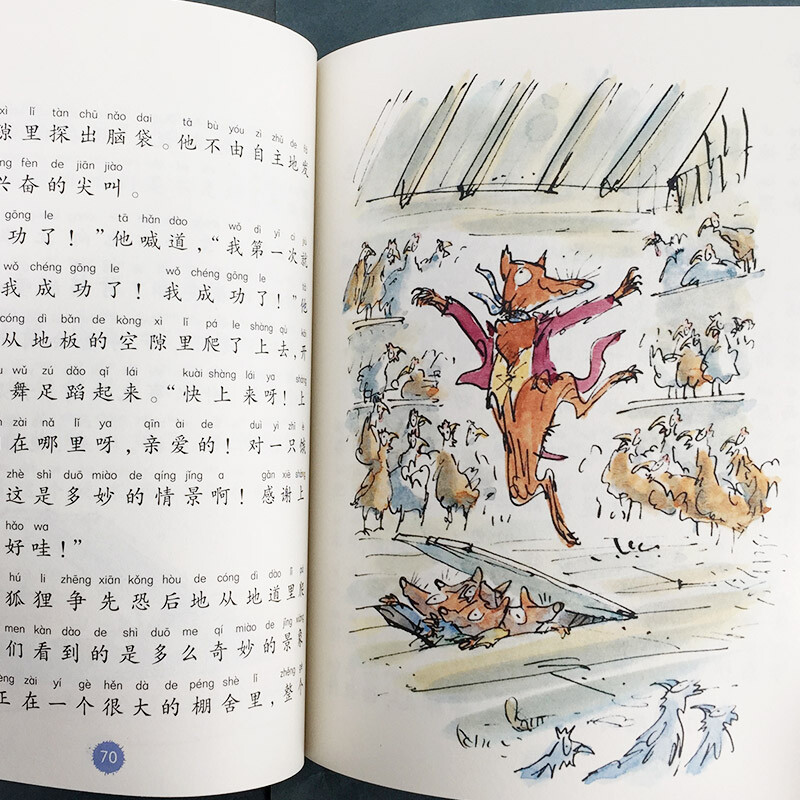 xì lǐ tàn chū nǎo dai tā bù yóu zì zhǔ de
隙里探出脑袋。他不由自主地发
fèn de jiān jiào
兴奋的尖叫。
gōng le tā hǎn dào wǒ dì yī cì
功了！”他喊道，“我第一次就
wǒ chéng gōng le wǒ chéng gōng le
我成功了！我成功了！”他
cóng dì bǎn de kòng xì lǐ pá le shàng qù
从地板的空隙里爬了上去，开
wǔ zú dǎo qǐ lái kuài shàng lái ya shàng
舞足蹈起来。“快上来呀！上
zài nǎ lǐ ya qīn ài de duì yì zhī
在哪里呀，亲爱的！对一只饿
zhè shì duō miào de qíng jǐng a gǎn xiè shàng
这是多妙的情景啊！感谢上
hǎo wa
好哇！”
hú li zhēng xiān kǒng hòu de cóng dì dào lǐ pá
狐狸争先恐后地从地道里爬
men kàn dào de shì duō me qí miào de jǐng xiàng
们看到的是多么奇妙的景象
zài yí gè hěn dà de péng shè lǐ zhěng gè
正在一个很大的棚舍里，整个
70